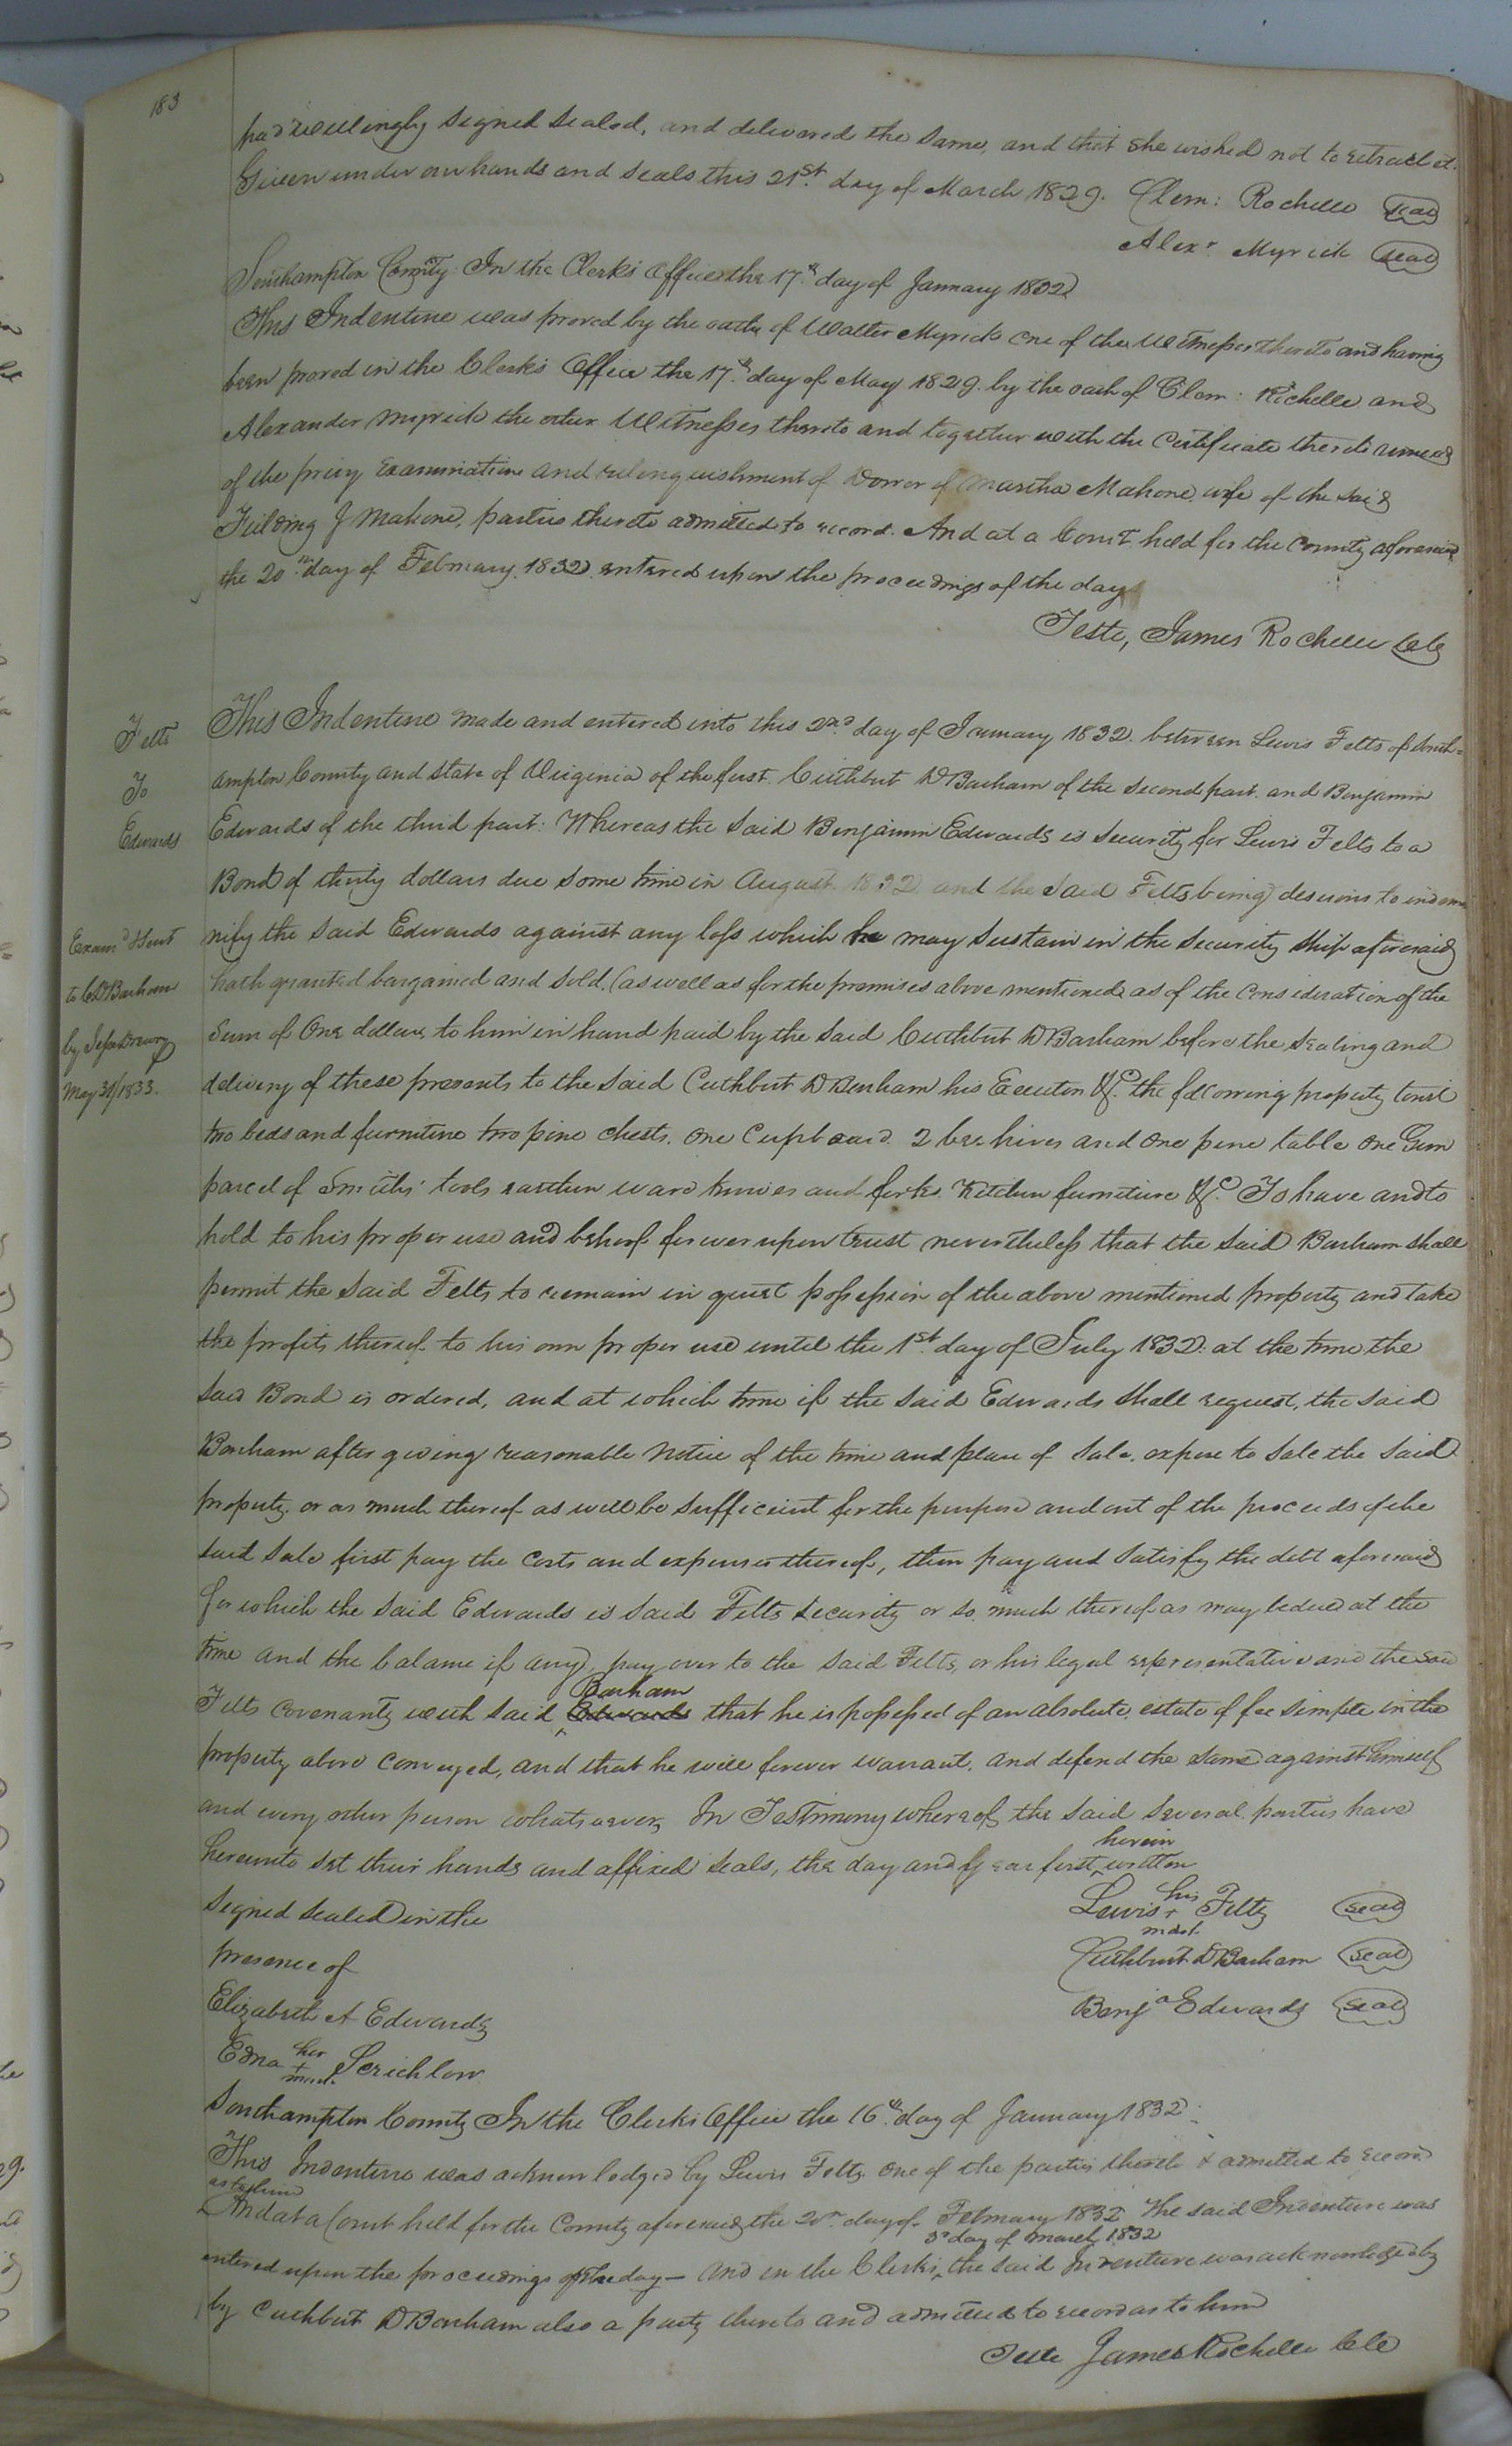 183
had willingly signed sealed, and delivered the same, and that she wished not to retract it.
Given under our hands and seals this 21st. day of March 1829. Clem: Rochelle seal
Alexr. Myrick seal
Southampton County: In the Clerk's Office the 17th day of January 1832
This Indenture was proved by the oath of Walter Myrick one of the Witnesses thereto and having
been proved in the Clerk's Office the 17th day of May 1829. by the oath of Clem: Rochelle and
Alexander Myrick the other Witnesses thereto and together with the certificate thereto annexed
of the privy Examination and relinquishment of Dower of Martha Mahone, wife of the said
Fielding J Mahone, parties thereto admitted to record. And at a Court held for the County aforesaid
the 20th day of February 1832 entered upon the proceedings of the day
Teste, James Rochelle Clk
Felts
To
Edwards
This Indenture made and entered into this 2nd. day of January 1832. between Lewis Felts of South-
ampton County and State of Virginia of the first. Cuthbut D Barham of the second part. and Benjamin
Edwards of the third part: Whereas the said Benjamin Edwards is security for Lewis Felts to a
Bond of thirty dollars due some time in August 1832 and the said Felts being desirous to indem
Examd. & sent
to CD Barham
by
May 31/1833.
nify the said Edwards against any loss which he may sustain in the security ship aforesaid
hath granted bargained and sold, (as well as for the premises above mentioned as of the Consideration of the
Sum of One dollar, to him in hand paid by the said Cuthbut D Barham before the sealing and
delivery of these presents to the said Cuthbut D Barham his Executor &c. the following property towit
two beds and furniture two pine chests. One Cupboard. 2 bee hives and One pine table One Gun
parcel of Smiths' tools earthen ware knives and forks. Kitchen furniture &c. To have and to
hold to his proper use and behoof forever upon trust nevertheless that the said Barham shall
permit the said Felts to remain in quiet possession of the above mentioned property and take
the profits thereof to his own proper use until the 1st. day of July 1832. at the time the
said Bond is ordered, and at which time if the said Edwards shall request, the said
Barham after giving reasonable notice of the time and place of sale. expose to sale the said
property. or as much thereof as will be sufficient for the purpose and out of the proceeds of the
said sale first pay the Costs and expenses thereof, then pay and satisfy the debt aforesaid
for which the said Edwards is said Felts security or so much thereof as may be due at the
time and the balance if any, pay over to the said Felts, or his legal representative and the said
Felts covenants with said ^ Barham Edwards that he is possessed of an absolute estate of fee simple in the
property above conveyed, and that he will forever warrant. and defend the same against himself
and every other person whatsoever, In Testimony whereof the said several parties have
hereunto set their hands and affixed seals, the day and year first ^ herein written
Signed sealed in the
presence of
Elizabeth A Edwards
Edna her + mark
Lewis his + mark Felts seal
Cuthbut D Barham seal
Benja Edwards seal
Southampton County In the Clerk's Office the 16th day of January 1832.
This Indenture was acknowledged by Lewis Felts. One of the parties thereto & admitted to record
as to him
And at a Court held for the County aforesaid the 20th day of February 1832 The said Indenture was
3d day of March 1832
entered upon the proceedings of the day— And in the Clerks ^ the said Indenture was acknowledged by
by Cuthbut D Barham also a party thereto and admitted to record as to him
Teste James Rochelle Clk